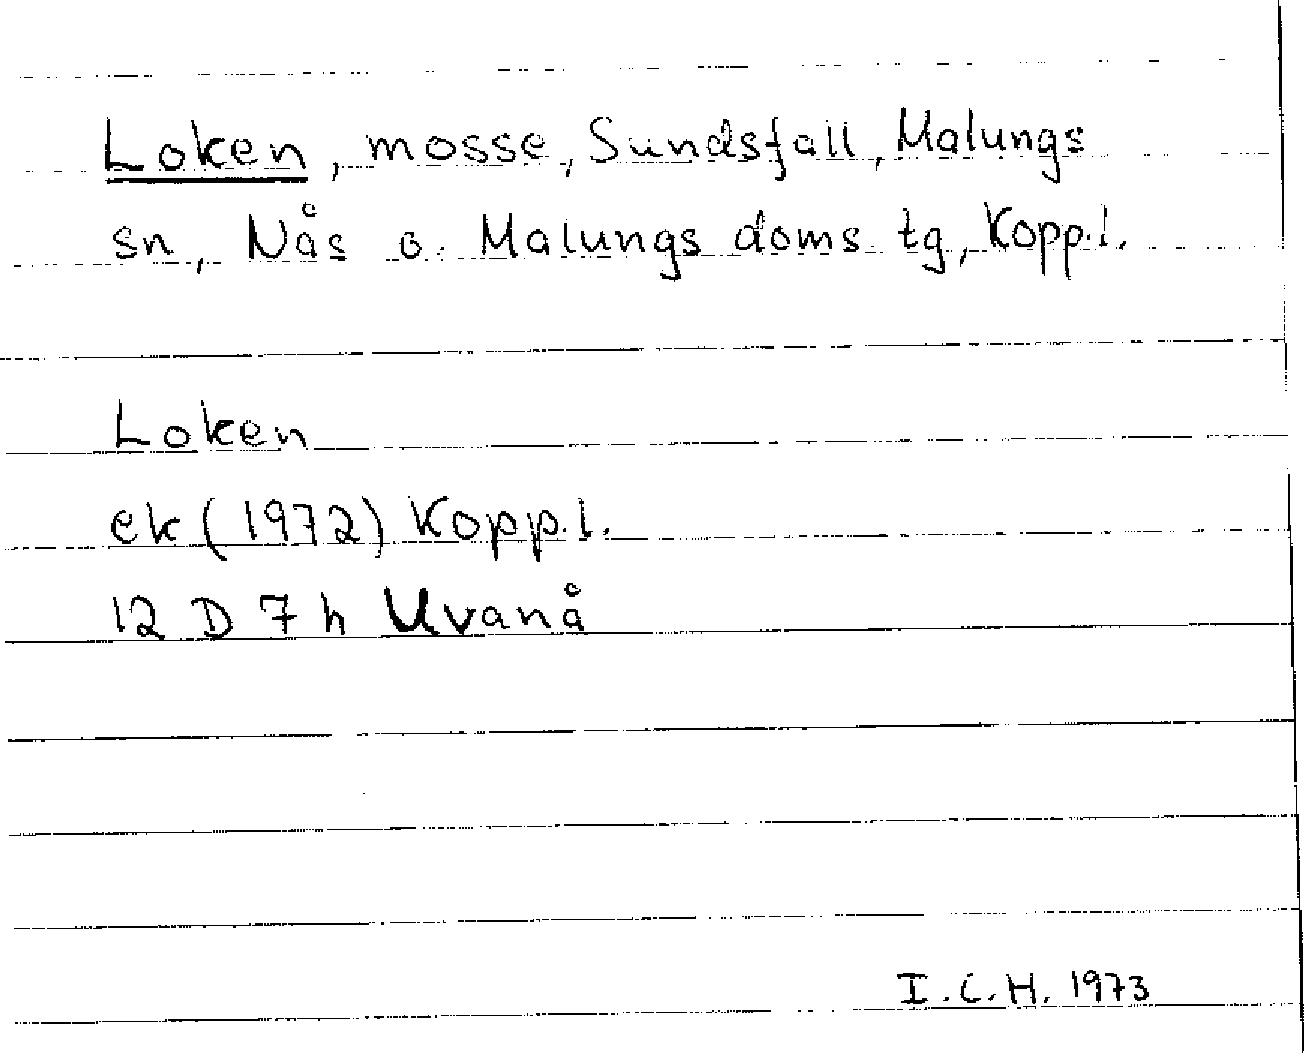 Loken, mosse, Sundsfall, Malungs
sn, Nås o. Malungs doms tg, Kopp.l.
Loken
ek (1972) Kopp.l.
12 D 7 h Uvanå
I.C.H. 1973